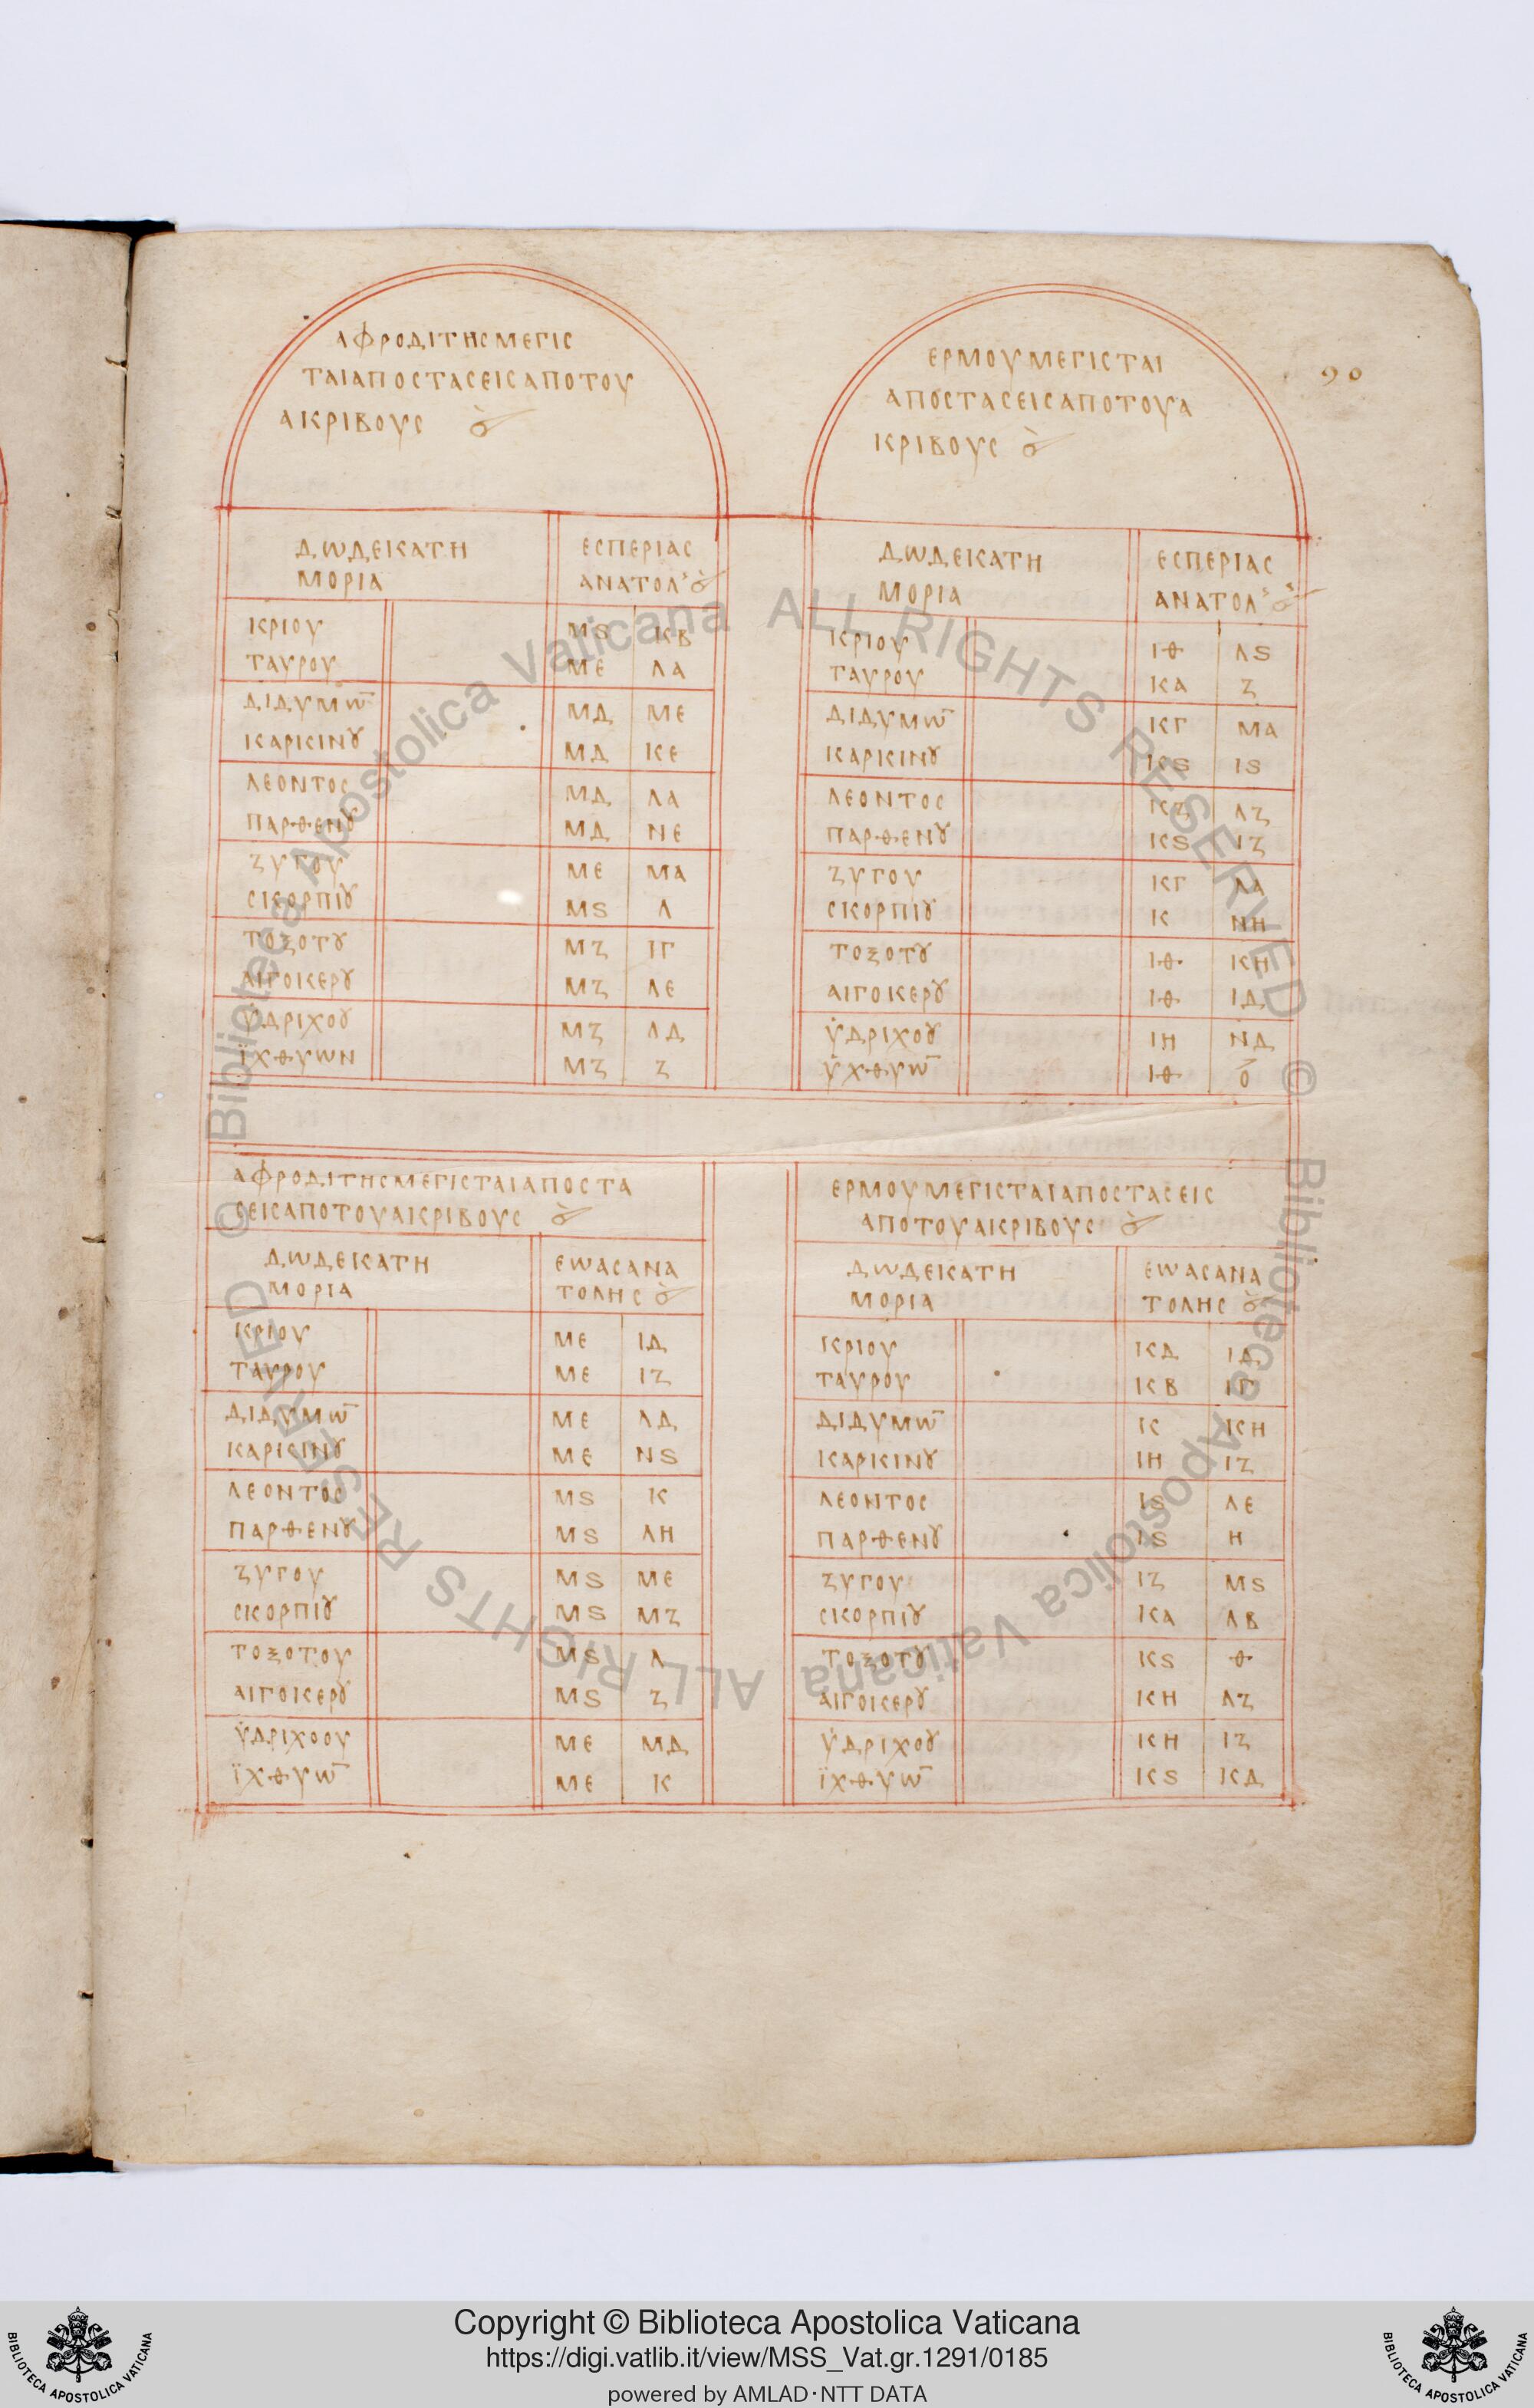 ΑΦΡΟΔΙΤΗϹΜΕΓΙϹ
ΤΑΙΑΠΟϹΤΑϹΕΙϹΑΠΟΤΟΥ
ΑΚΡΙΒΟΥϹ
ΔΩΔΕΚΑΤΗ ΕϹΠΕΡΙΑϹ
ΜΟΡΙΑ ΑΝΑΤΟΛ
ΚΡΙΟΥ ΜϚ ΚΒ
ΤΑΥΡΟΥ ΜΕ ΛΑ
ΔΙΔΥΜΩ̅ ΜΔ ΜΕ
ΚΑΡΚΙΝȢ ΜΔ ΚΕ
ΛΕΟΝΤΟϹ ΜΔ ΛΑ
ΠΑΡΘΕΝȢ ΜΔ ΝΕ
ΖΥΓΟΥ ΜΕ ΜΑ
ϹΚΟΡΠΙȢ ΜϚ Λ
ΤΟΞΟΤȢ ΜΖ ΙΓ
ΑΙΓΟΚΕΡȢ ΜΖ ΛΕ
ΥΔΡΙΧΟȢ ΜΖ ΛΔ
ΪΧΘΥΩΝ ΜΖ Ζ
ΕΡΜΟΥΜΕΓΙϹΤΑΙ
ΑΠΟϹΤΑϹΕΙϹΑΠΟΤΟΥΑ
ΚΡΙΒΟΥϹ
90
ΔΩΔΕΚΑΤΗ ΕϹΠΕΡΙΑϹ
ΜΟΡΙΑ ΑΝΑΤΟΛ
ΚΡΙΟΥ ΙΘ ΛϚ
ΤΑΥΡΟΥ ΚΑ Ζ
ΔΙΔΥΜΩ̅ ΚΓ ΜΑ
ΚΑΡΚΙΝȢ ΚϚ ΙϚ
ΛΕΟΝΤΟϹ ΚΖ ΛΖ
ΠΑΡΘΕΝȢ ΚϚ ΙΖ
ΖΥΓΟΥ ΚΓ ΛΑ
ϹΚΟΡΠΙȢ Κ ΝΗ
ΤΟΞΟΤȢ ΙΘ ΚΗ
ΑΙΓΟΚΕΡȢ ΙΘ ΙΔ
ΥΔΡΙΧΟȢ ΙΗ ΝΔ
ΥΧΘΥΩ̅ ΙΘ Ο̅
ΑΦΡΟΔΙΤΗϹΜΕΓΙϹΤΑΙΑΠΟϹΤΑ
ϹΕΙϹΑΠΟΤΟΥΑΚΡΙΒΟΥϹ
ΔΩΔΕΚΑΤΗ ΕΩΑϹΑΝΑ
ΜΟΡΙΑ ΤΟΛΗϹ
ΚΡΙΟΥ ΜΕ ΙΔ
ΤΑΥΡΟΥ ΜΕ ΙΖ
ΔΙΔΥΜΩ̅ ΜΕ ΛΔ
ΚΑΡΚΙΝȢ ΜΕ ΝϚ
ΛΕΟΝΤΟϹ ΜϚ Κ
ΠΑΡΘΕΝȢ ΜϚ ΛΗ
ΖΥΓΟΥ ΜϚ ΜΕ
ϹΚΟΡΠΙȢ ΜϚ ΜΖ
ΤΟΞΟΤΟΥ ΜϚ Λ
ΑΙΓΟΚΕΡȢ ΜϚ Ζ
ΥΔΡΙΧΟΟΥ ΜΕ ΜΔ
ΪΧΘΥΩ̅ ΜΕ Κ
ΕΡΜΟΥΜΕΓΙϹΤΑΙΑΠΟϹΤΑϹΕΙϹ
ΑΠΟΤΟΥΑΚΡΙΒΟΥϹ
ΔΩΔΕΚΑΤΗ ΕΩΑϹΑΝΑ
ΜΟΡΙΑ ΤΟΛΗϹ
ΚΡΙΟΥ ΚΔ ΙΔ
ΤΑΥΡΟΥ ΚΒ ΙΓ
ΔΙΔΥΜΩ̅ Κ ΚΗ
ΚΑΡΚΙΝȢ ΙΗ ΙΖ
ΛΕΟΝΤΟϹ ΙϚ ΛΕ
ΠΑΡΘΕΝȢ ΙϚ Η
ΖΥΓΟΥ ΙΖ ΜϚ
ϹΚΟΡΠΙȢ ΚΑ ΛΒ
ΤΟΞΟΤȢ ΚϚ Θ
ΑΙΓΟΚΕΡȢ ΚΗ ΛΖ
ΥΔΡΙΧΟȢ ΚΗ ΙΖ
ΪΧΘΥΩ̅ ΚϚ ΚΔ
© Biblioteca Apostolica Vaticana ALL RIGHTS RESERVED
© Biblioteca Apostolica Vaticana ALL RIGHTS RESERVED
Copyright © Biblioteca Apostolica Vaticana
https://digi.vatlib.it/view/MSS_Vat.gr.1291/0185
powered by AMLAD·NTT DATA
BIBLIOTECA APOSTOLICA VATICANA
BIBLIOTECA APOSTOLICA VATICANA